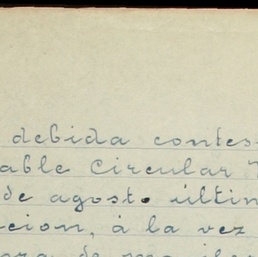 debida contes
able Circular
de agosto últin
cion, á la vez
de